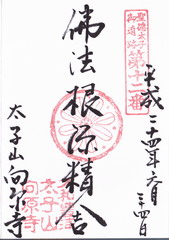 聖徳太子
御遺跡第十二番
平成二十四年六月
佛法根源精舎
太子山向原寺
太子山
向原寺